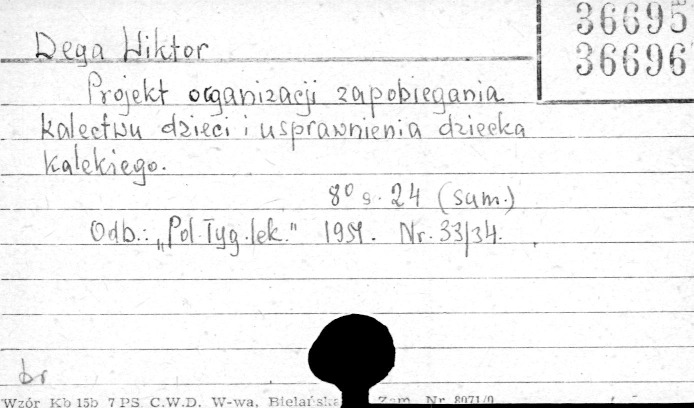 36695
36696
Dega Wiktor
Projekt organizacji zapobiegania
kalectwu dzieci i usprawnienia dziecka
kalekiego.
8° s. 24 (sum.)
Odb.: „Pol. Tyg. lek." 1951. Nr. 33/34.
br
Wzór Kb 15b 7 PS C.W.D. W-wa, Bielańska Zam. Nr 8071/0